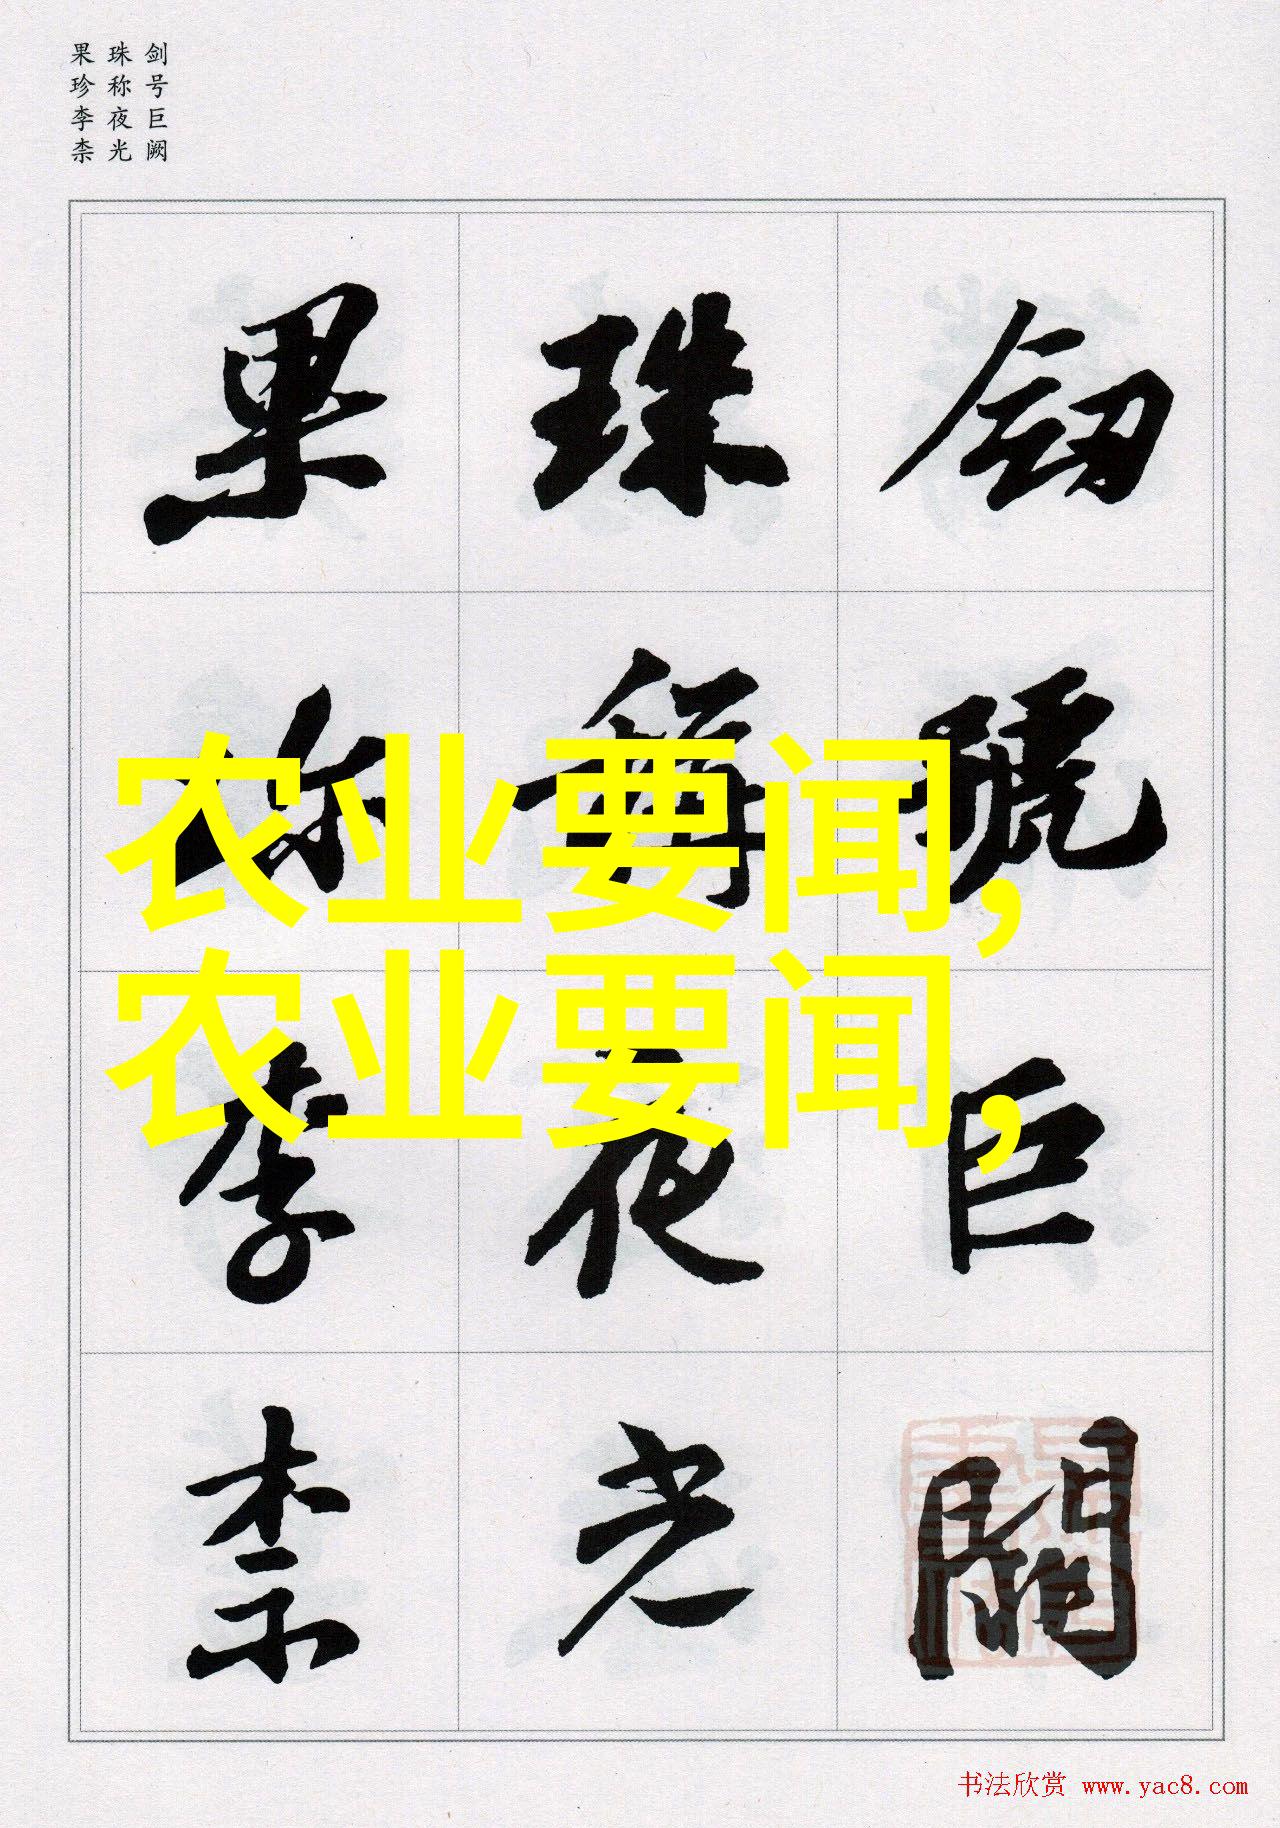 剑号巨阙
珠称夜光
果珍李柰
釼號巨闕
珠稱夜光
果珎李柰
农业要闻,
农业要闻,
书法欣赏 www.yac8.com